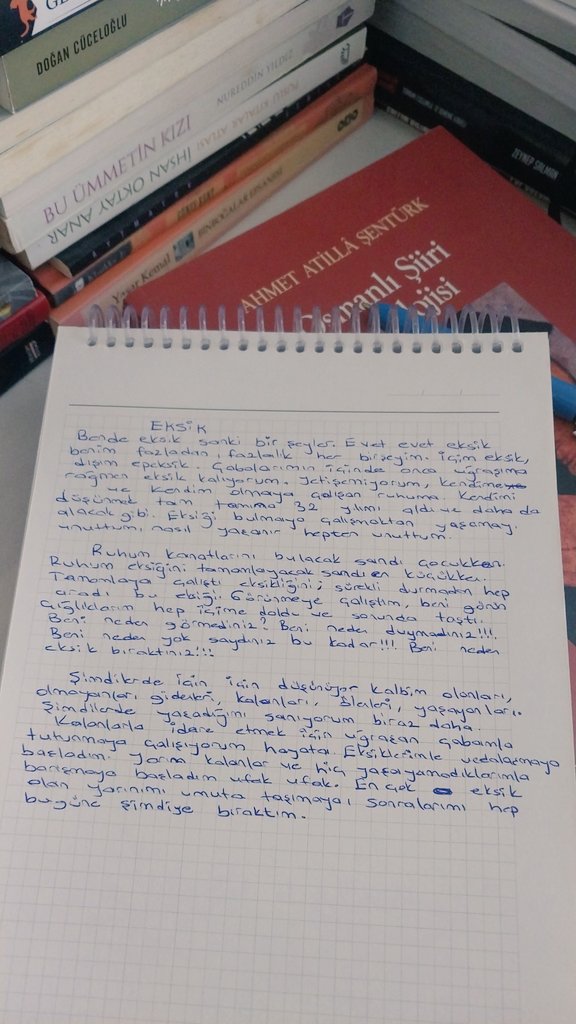 DOĞAN CÜCELOĞLU
NUREDDİN YILDIZ
BU ÜMMETİN KIZI
İHSAN OKTAY ANAR
PUSLU KITALAR ATLASI
Yaşar Kemal
BİNBOĞALAR EFSANESİ
ZEYNEP
AHMET ATİLLÂ ŞENTÜRK
smanlı Şiiri
lojisi
EKSİK
Bende eksik sanki bir şeyler. Evet evet eksik
benim fazladan, fazlalık her birşeyim. İçim eksik,
dışım epeksik. Çabalarımın içinde onca uğraşıma
rağmen eksik kalıyorum. Yetişemiyorum, kendime
ve kendim olmaya çalışan ruhuma. Kendimi
düşünmek tam tamına 32 yılımı aldı ve daha da
alacak gibi. Eksiği bulmaya çalışmaktan yaşamayı
unuttum, nasıl yaşanır hepten unuttum.
Ruhum kanatlarını bulacak sandı çocukken.
Ruhum eksiğini tamamlayacak sandı en küçükken.
Tamamlaya çalıştı eksikliğini; sürekli durmadan hep
aradı bu eksiği. Görünmeye çalıştım, beni görün
çığlıklarım hep içime doldu ve sonunda taştı.
Beni neden görmediniz? Beni neden duymadınız!!!
Beni neden yok saydınız bu kadar!!! Beni neden
eksik bıraktınız!!!
Şimdilerde için için düşünüyor kalbim olanları,
olmayanları gidenleri, kalanları, ölenleri, yaşayanları.
Şimdilerde yaşadığını sanıyorum biraz daha.
Kalanlarla idare etmek için uğraşan çabamla
tutunmaya çalışıyorum hayata. Eksiklerimle vedalaşmaya
başladım. Yarım kalanlar ve hiç yaşayamadıklarımla
barışmaya başladım ufak ufak. En çok eksik
olan yarınımı umuta taşımayı, sonralarımı hep
bugüne şimdiye bıraktım.